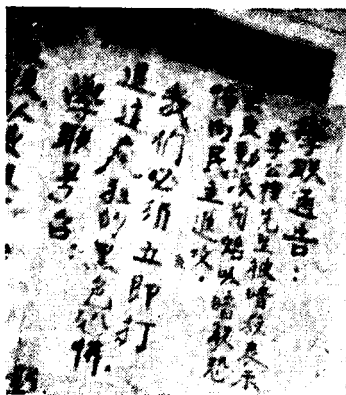 學联通告：
李公樸先生被暗殺表示
反動派開始以暗殺恐
怖向民主進攻．
我们必須立即打
退這的黑色恐怖．
學联号召：